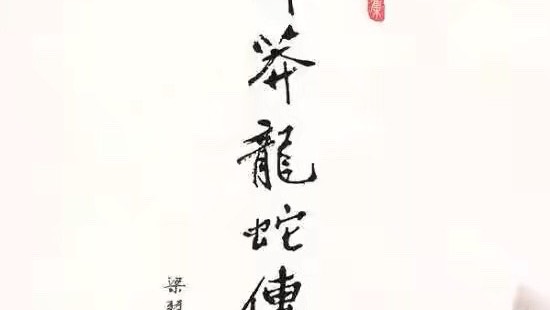 莽龍蛇傳
梁